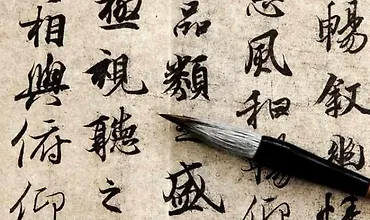 暢叙幽情
惠風和暢仰
品類之盛
極視聽之
相與俯仰